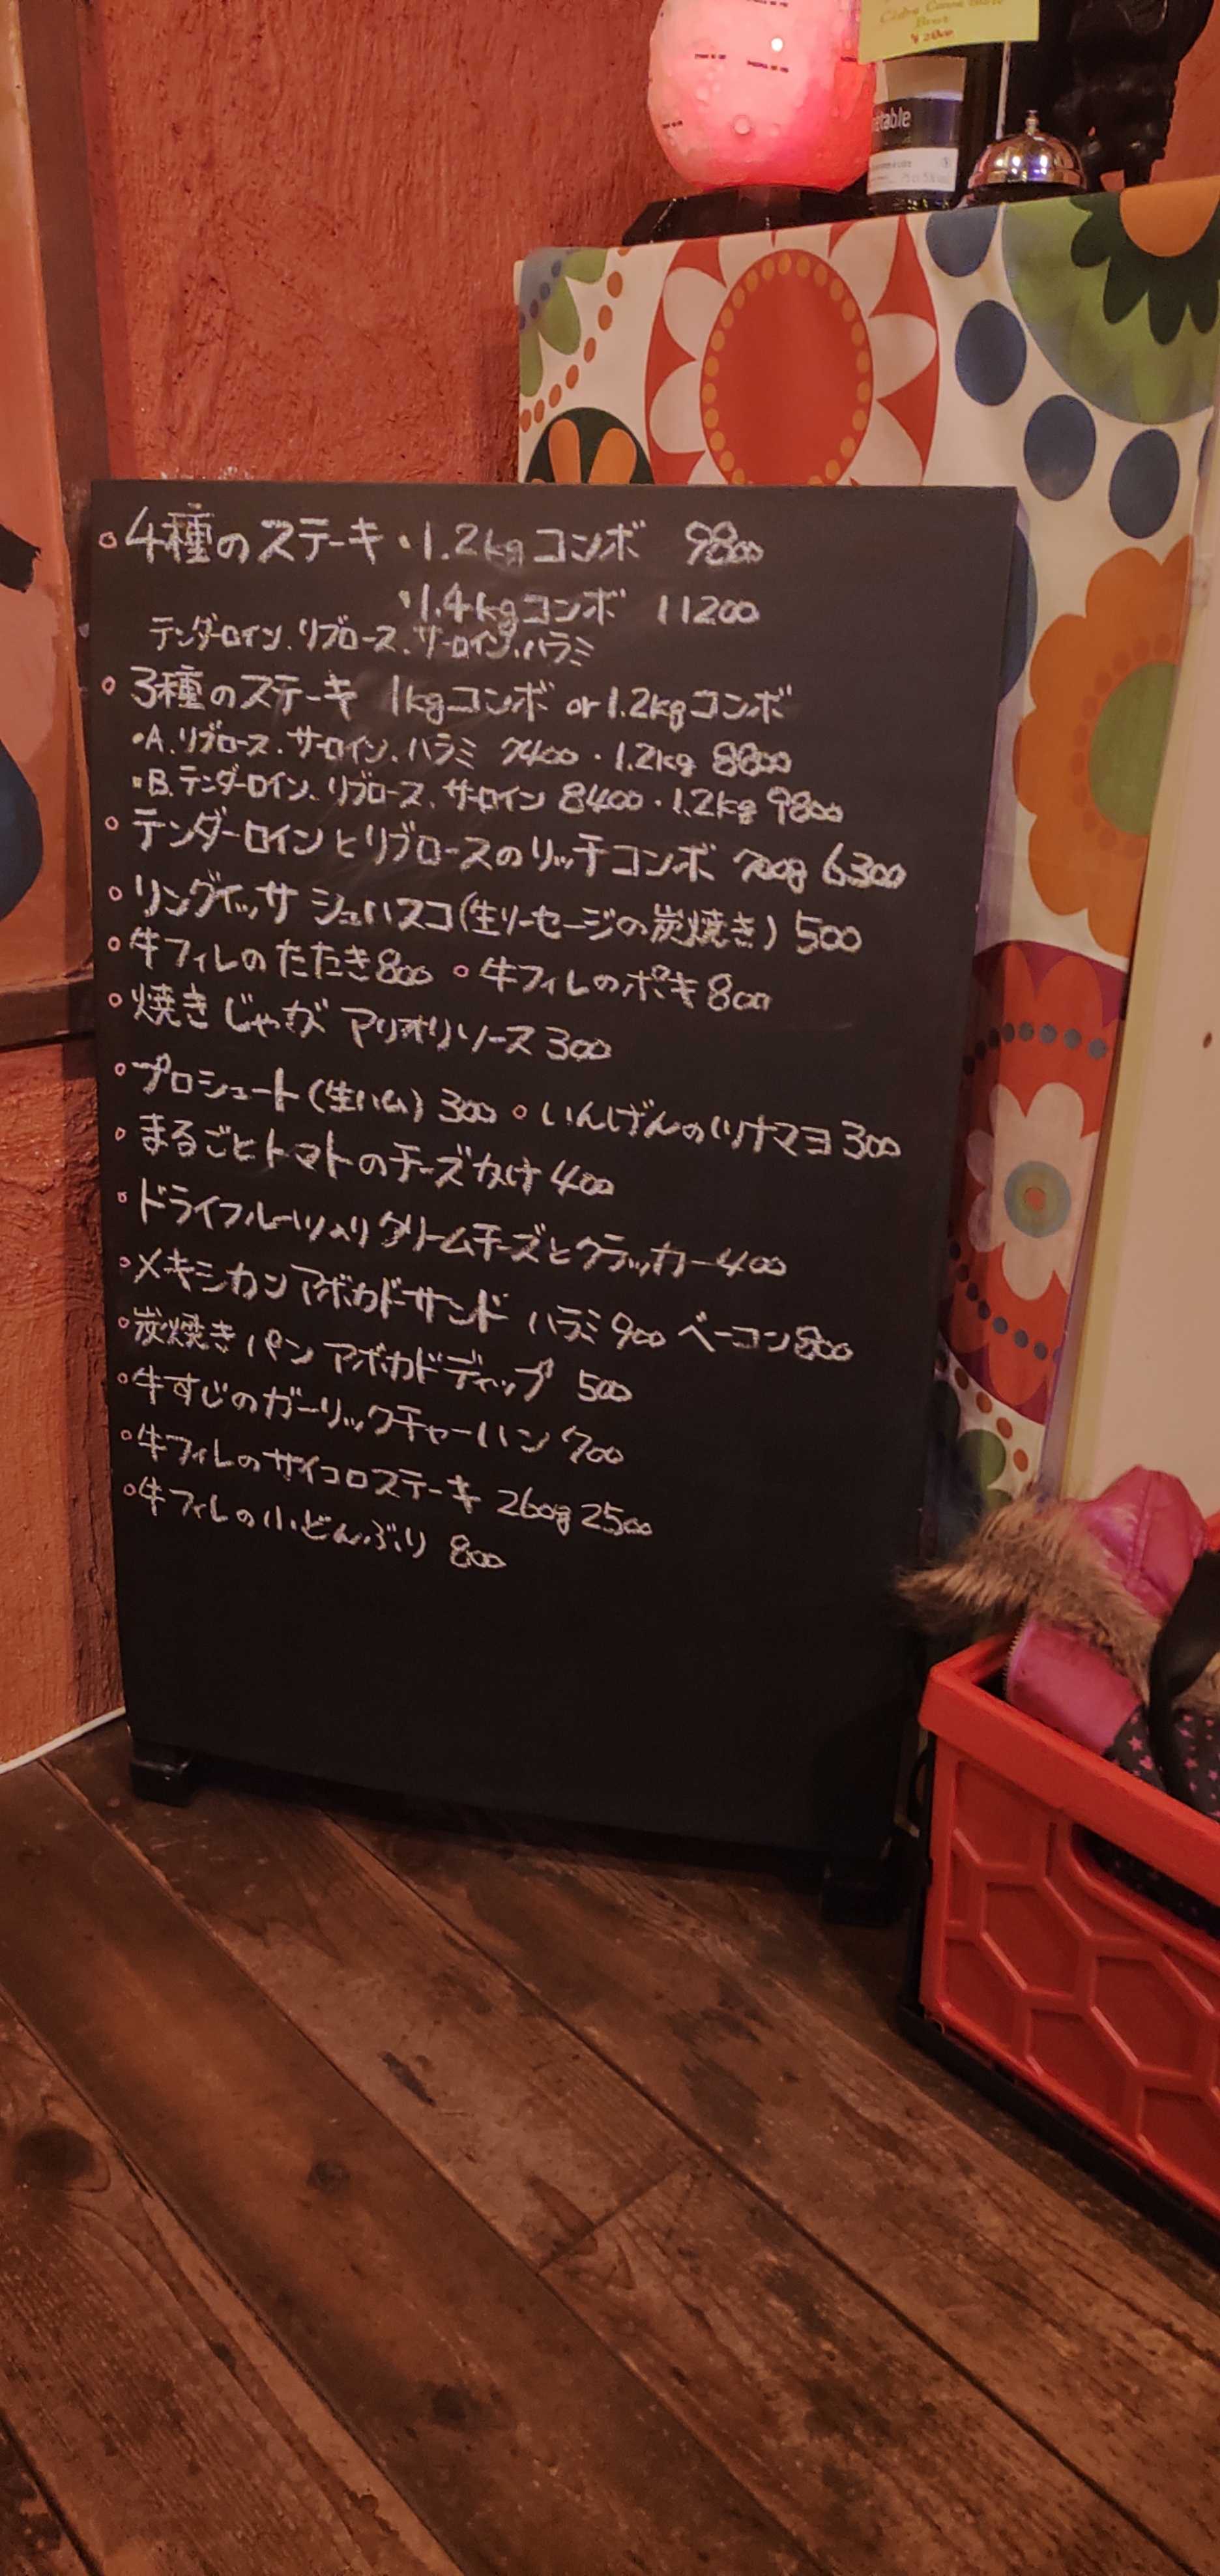 Brut
etable
○4種のステーキ・1.2kgコンボ 9800
・1.4kgコンボ 11200
テンダーロイン、リブロース、サーロイン、ハラミ
○3種のステーキ 1kgコンボ or 1.2kgコンボ
・A.リブロース、サーロイン、ハラミ 7400・1.2kg 8800
・B.テンダーロイン、リブロース、サーロイン 8400・1.2kg 9800
○テンダーロインとリブロースのリッチコンボ 700g 6300
○リングイッサ シュハスコ(生ソーセージの炭焼き) 500
○牛フィレのたたき800 ○牛フィレのポキ800
○焼きじゃが アリオリソース300
○プロシュート(生ハム) 300 ○いんげんのツナマヨ300
○まるごとトマトのチーズかけ400
○ドライフルーツ入りクリームチーズとクラッカー400
○メキシカンアボカドーサンド ハラミ900 ベーコン800
○炭焼きパン アボカドディップ 500
○牛すじのガーリックチャーハン700
○牛フィレのサイコロステーキ 260g 2500
○牛フィレの小どんぶり 800